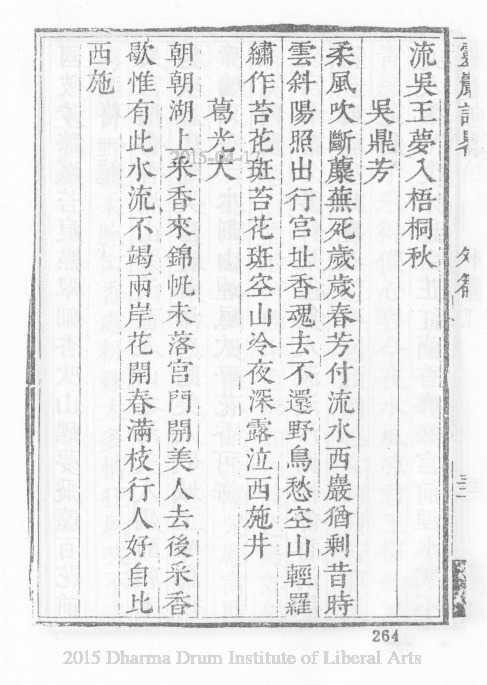 靈巖記畧 外篇
流吳王夢入梧桐秋
吳鼎芳
柔風吹斷蘼蕪死歲歲春芳付流水西巖猶剩昔時
雲斜陽照出行宮址香魂去不還野鳥愁空山輕羅
繡作苔花斑苔花斑空山冷夜深露泣西施井
葛光大
朝朝湖上采香來錦帆未落宮門開美人去後采香
歇惟有此水流不竭兩岸花開春滿枝行人好自比
西施
264
2015 Dharma Drum Institute of Liberal Arts